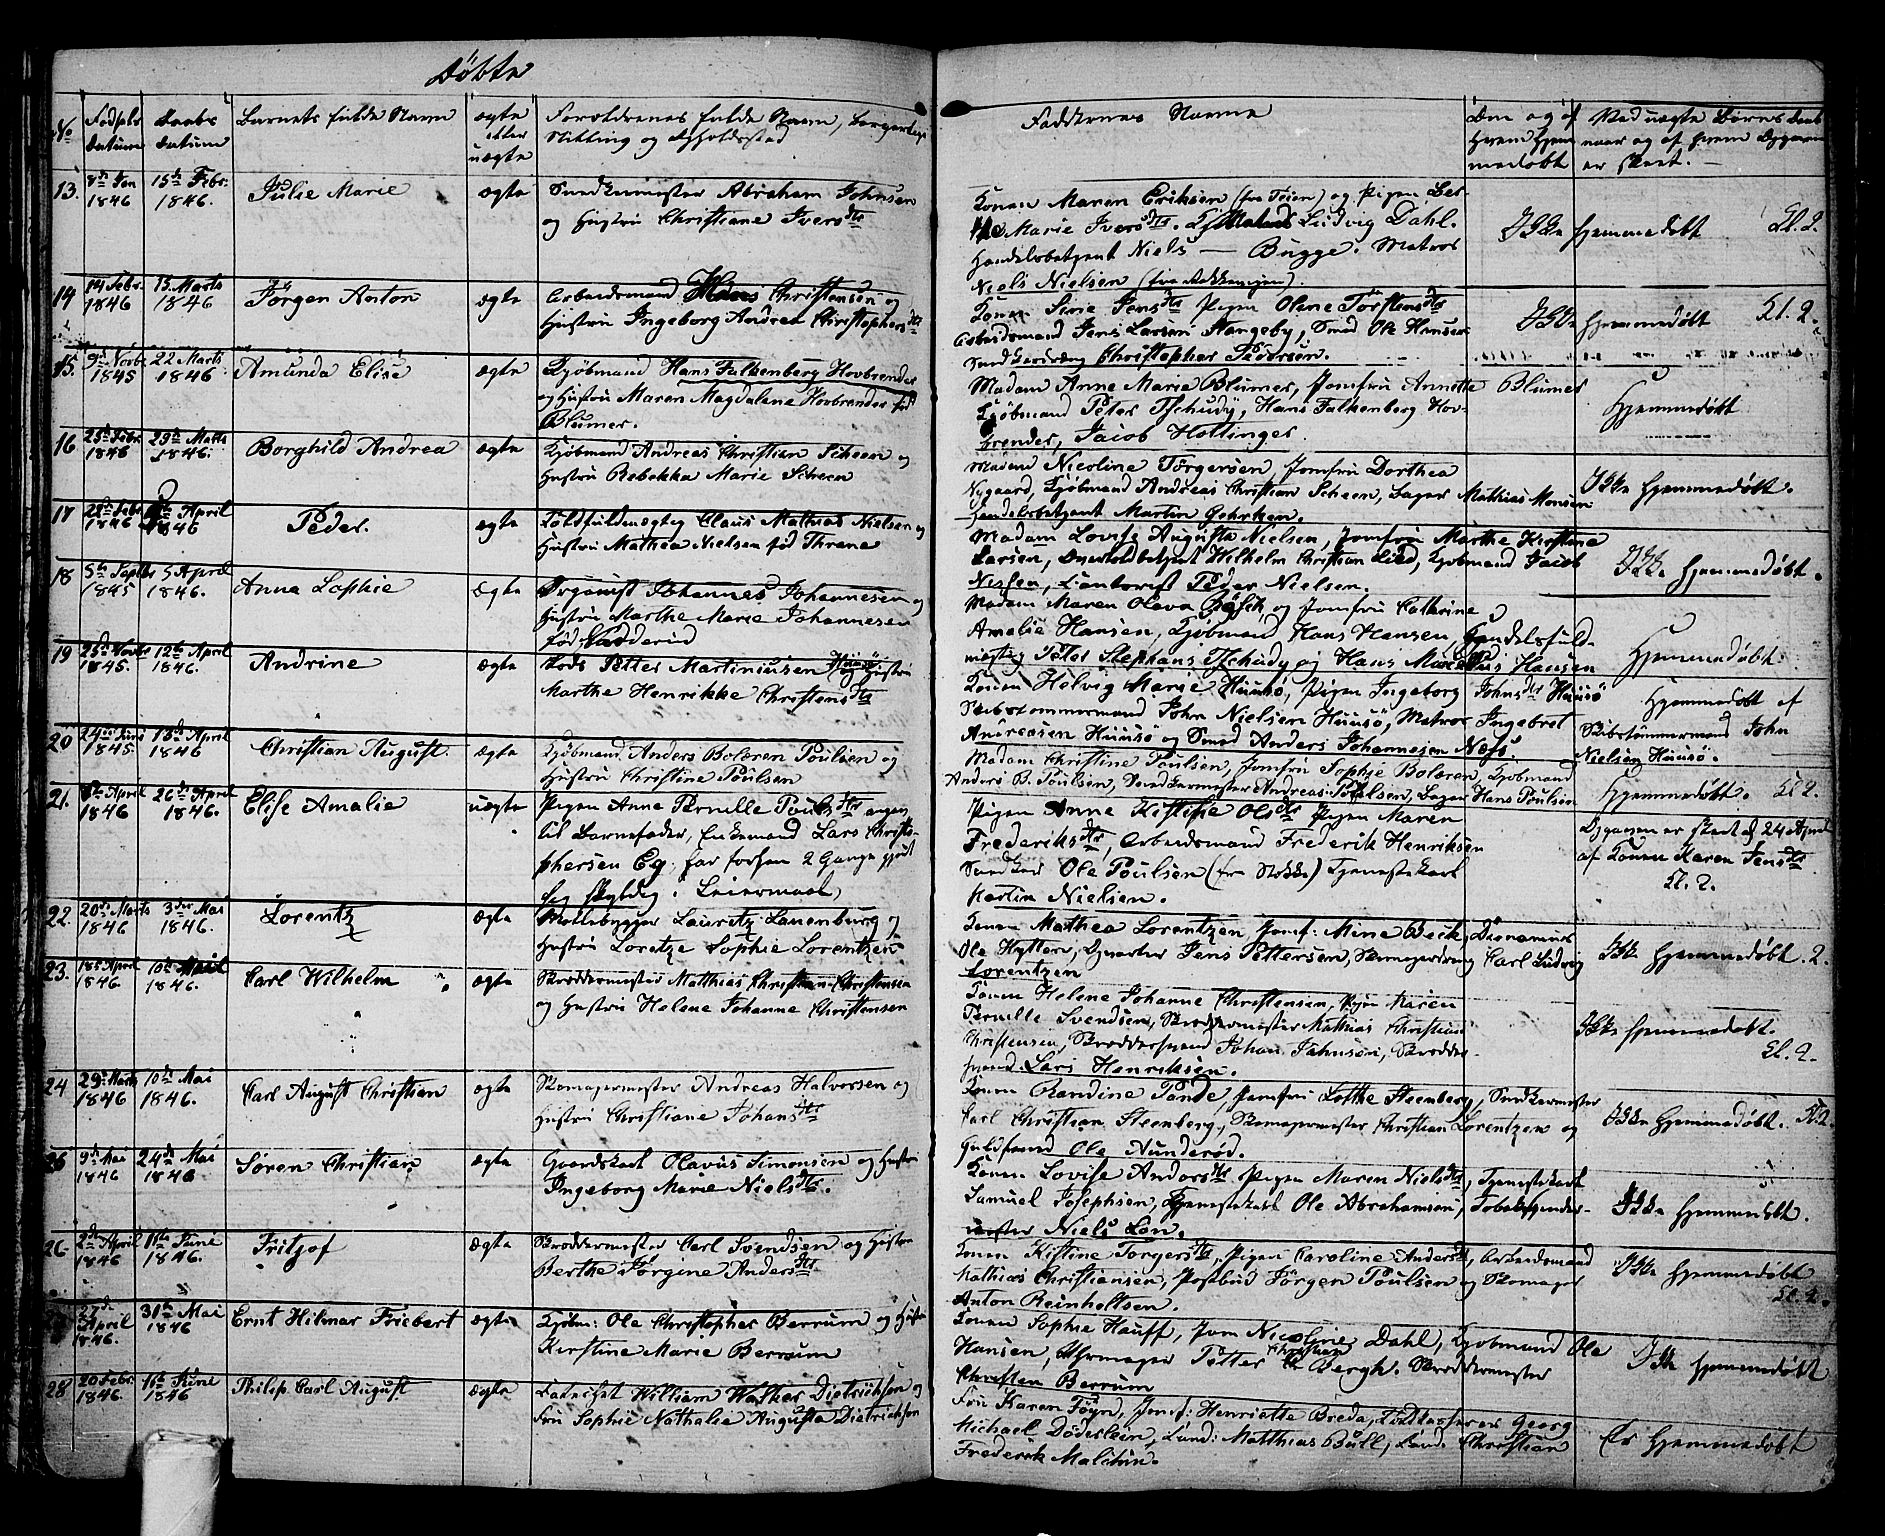 Döbte
No
Födsels Datum
Daabs Datum
Barnets fulde Navn
ægte eller uægte
Forældrenes fulde Navn, Borgerlige Stilling og Opholdssted
Faddernes Navne
Om og af hvem hjemmedøbt
Ved uægte Børns Daab
naar og af hvem
er skeet. —
13. 8de Jan 1846
15de Febr. 1846.
Julie Marie
ægte
Snedkermester Abraham Johnsen
og Hustru Christiane Iversdtr
Konen Maren Eriksen (fra Teien) og Pigen
Marie Iversdtr. Ludvig Dahl.
Handelsbetjent Niels — Bugge. Matros
Niels Nielsen
Ikke hjemmedøbt
Cl. 2.
14 14 Febr. 1846
15 Marts 1846
Jörgen Anton
ægte
Arbeidsmand Hans Christensen og
Hustru Ingeborg Andrea Christophersdtr
Konen Sirie Jensdtr Pigen Olene Torstensdtr
Arbeidsmand Jens Larsen Hangeby, Smed Ole Hansen
Christopher Pedersen.
Ikke hjemmedøbt
Cl. 2.
15. 9de Novbr 1845
22 Marts 1846
Amunda Elise
ægte
Kjøbmand Hans Falkenberg Hovbrender
og Hustru Maren Magdalena Hovbrender fød
Blumer.
Madam Anne Marie Blumer, Jomfru Annette Blumer
Kjøbmand Peter Tschudy, Hans Falkenberg Hov-
brender, Jacob Hottinger.
Hjemmedøbt
16 25de Febr 1846
29de Marts 1846.
Borghild Andrea
ægte
Kjøbmand Andreas Christian Scheen og
Hustru Rebekka Marie Scheen
Madam Nicoline Torgersen, Jomfru Dorthea
Nygaard, Kjøbmand Andreas Christian Scheen, Bager Mathias Monsen
Handelsbetjent Martin Gehrken.
Ikke hjemmedøbt.
17 22de Febr 1846
April 1846
Peder.
ægte
Toldfuldmægtig Claus Mathias Nielsen og
Hustru Mathea Nielsen fød Thrane
Madam Lovise Augusta Nielsen, Jomfru Marthe Kirstine
Larsen, Overtoldbetjent Wilhelm Christian Lied, Kjøbmand Jacob
Nielsen, Contorist Peder Nielsen.
Ikke hjemmedøbt.
18 5te Septbr 1845
5 April 1846.
Anna Sophie
ægte
Organist Johannes Johannesen og
Hustru Marthe Marie Johannesen
fød Nadderud
Madam Maren Olava Bösch og Jomfru Cathrine
Amalie Hansen, Kjøbmand Hans Hansen, Handelsfuld-
mægtig Peter Stephans Tschudy og Hans Marcelius Hansen
Hjemmedøbt.
19 25de Novbr 1845.
12te April 1846.
Andrine
ægte
Lods Petter Martiniusen Huusö og Hustru
Marthe Henrikke Christensdtr
Konen Helvig Marie Huusö, Pigen Ingeborg Johnsdtr Huusö
Skibstømmermand John Nielsen Huusö, Matros Ingebret
Andreasen Huusö og Smed Anders Johannesen Næss.
Hjemmedøbt af
Skibstømmermand John
Nielsen Huusö.
20 24de Juni 1845
13de April 1846
Christian August.
ægte
Kjøbmand Anders Bolæren Poulsen og
Hustru Christine Poulsen
Madam Christine Poulsen, Jomfru Sophie Bolæren, Kjøbmand
Anders B. Poulsen, Snedkermester Andreas Poulsen, Bager Hans Poulsen
Hjemmedøbt.
Cl 2.
21. 8de April 1846
26de April 1846.
Elise Amalie
uægte
Pigen Anne Pernille Poulsdtr angiv.
til Barnefader, Enkemand Lars Christo-
phersen Eg. har forhen 2 Gange gjort
sig skyldig i Leiermaal
Pigen Anne Kirstine Olsdtr Pigen Maren
Frederiksdtr, Arbeidsmand Frederik Henriksen
Ole Poulsen (fra Nøkke) Tjenestekarl
Martin Nielsen.
er skeet d. 24 April
af Konen Karen Jensdtr
Cl. 2.
22. 20de Marts 1846
3die Mai 1846.
Lorentz
ægte
Møllebygger Lauretz Lauenburg og
Hustru Loretze Sophie Lorentzen
Konen Mathea Lorentzen, Jomf: Mine Beck,
Ole Hytten, Jens Pettersen, Skomagersvend Carl Ludvig
Lorentzen
Ikke hjemmedøbt. 2.
23. 18de April 1846
10de Mai 1846.
Carl Wilhelm
ægte
Skræddermester Matthias Christian Christensen
og Hustru Helene Johanne Christensen
Konen Helene Johanne Christensen, Pigen Karen
Pernille Svendsen, Skræddermester Mathias Christian
Christensen, Skræddersvend Johan Jahnsen, Skrædder-
svend Lars Henriksen.
Ikke hjemmedøbt.
Cl. 2.
24 29de Marts 1846
10de Mai 1846.
Carl August Christian
ægte
Skomagermester Andreas Halvorsen og
Hustru Christiane Johansdtr
Konen Randine Pande, Jomfru Lotthe Steenberg, Snedkermester
Carl Christian Steenberg, Skomagermester Christian Lorentzen og
Guldsmed Ole Aunderød.
Ikke hjemmedøbt. Cl. 2.
25 9de Mai 1846
24de Mai 1846.
Søren Christian
ægte
Gaardskarl Olavus Simonsen og Hustru
Ingeborg Marie Nielsdtr.
Konen Lovise Andersdtr Pigen Maren Nielsdtr, Tjenestekarl
Samuel Josephsen, Tjenestekarl Ole Abrahamsen, Tobakspinder-
mester Niels Lon.
Ikke hjemmedøbt.
26. 2de April 1846
11te Juni 1846.
Fritjof
ægte
Skræddermester Carl Svendsen og Hustru
Berthe Jörgine Andersdtr
Konen Kistine Torgersdtr, Pigen Caroline Andersd, Arbeidsmand
Mathias Christiansen, Postbud Jörgen Poulsen og Skomager
Anton Reinholtsen.
Ikke hjemmedøbt
Cl. 2.
27de April 1846.
31te Mai 1846
Ernt Hilmar Friebert
ægte
Kjøbm: Ole Christopher Berrum og Hustru
Kirstine Marie Berrum
Konen Sophie Hauff, Jom Nicoline Dahl, Kjøbmand Ole
Hansen, Uhrmager Petter Christian Bergh. Skræddermester
Christen Berrum
Ikke hjemmedøbt
28 20 Febr. 1846
11te Juni 1846
Philip Carl August
ægte
Catechet William Walker Dietrichson og
Fru Sophie Nathalia Augusta Dietrichson
Fru Karen Föyn, Jomf: Henriette Breda, Toldkasserer Georg
Michael Döderlein, Cand: Matthias Bull, Cand. Christian
Frederik Malthin.
Er hjemmedøbt